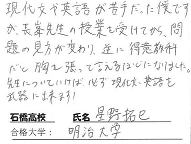 現代文や英語が苦手だった僕です
が、長峯先生の授業を受けてから、問
題の見方が変わり、逆に得意教科
だと胸を張って言えるほどになりました。
先生についていけば、必ず現代文・英語を
武器に出来ます!
石橋高校 氏名 星野拓巳
合格大学: 明治大学